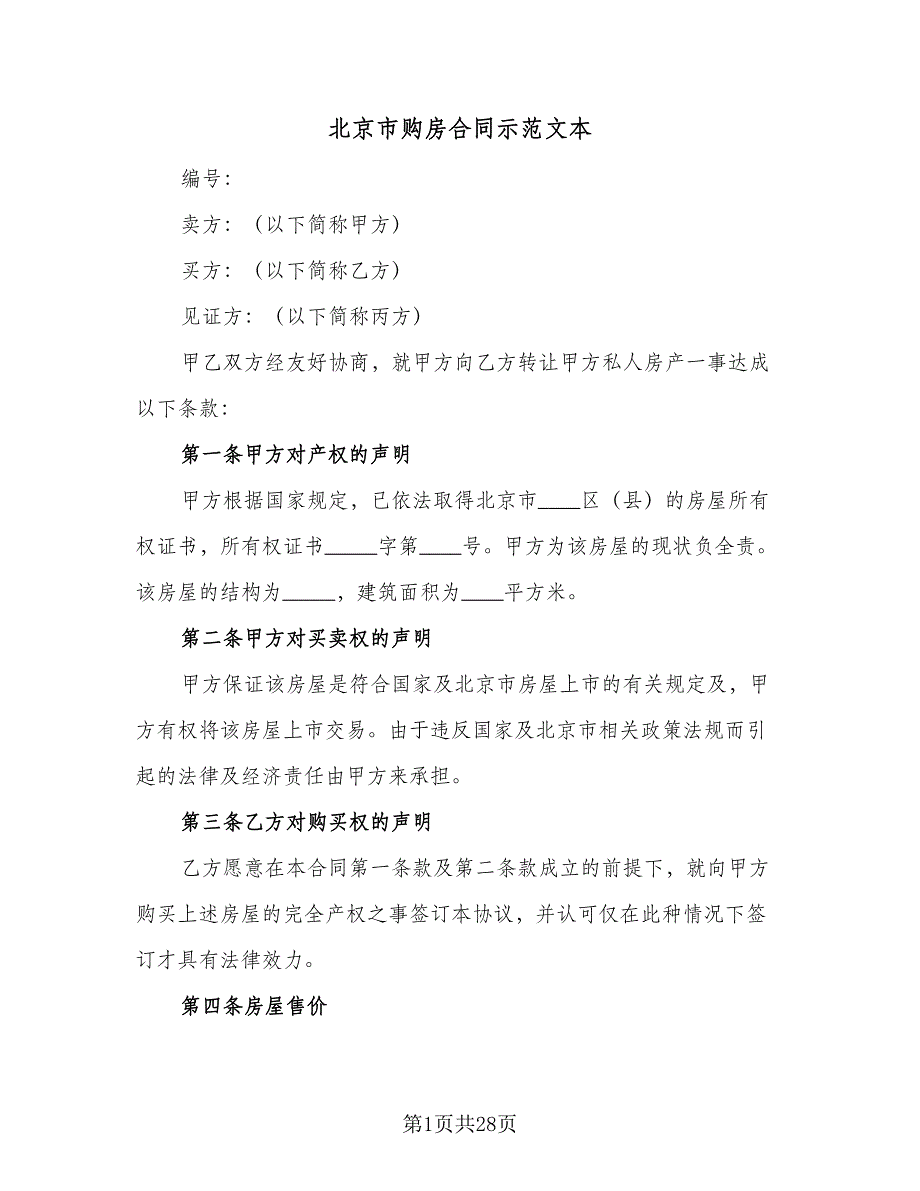 北京市购房合同示范文本
编号：
卖方：（以下简称甲方）
买方：（以下简称乙方）
见证方：（以下简称丙方）
甲乙双方经友好协商，就甲方向乙方转让甲方私人房产一事达成
以下条款：
第一条甲方对产权的声明
甲方根据国家规定，已依法取得北京市____区（县）的房屋所有
权证书，所有权证书_____字第____号。甲方为该房屋的现状负全责。
该房屋的结构为_____，建筑面积为____平方米。
第二条甲方对买卖权的声明
甲方保证该房屋是符合国家及北京市房屋上市的有关规定及，甲
方有权将该房屋上市交易。由于违反国家及北京市相关政策法规而引
起的法律及经济责任由甲方来承担。
第三条乙方对购买权的声明
乙方愿意在本合同第一条款及第二条款成立的前提下，就向甲方
购买上述房屋的完全产权之事签订本协议，并认可仅在此种情况下签
订才具有法律效力。
第四条房屋售价
第1页共28页